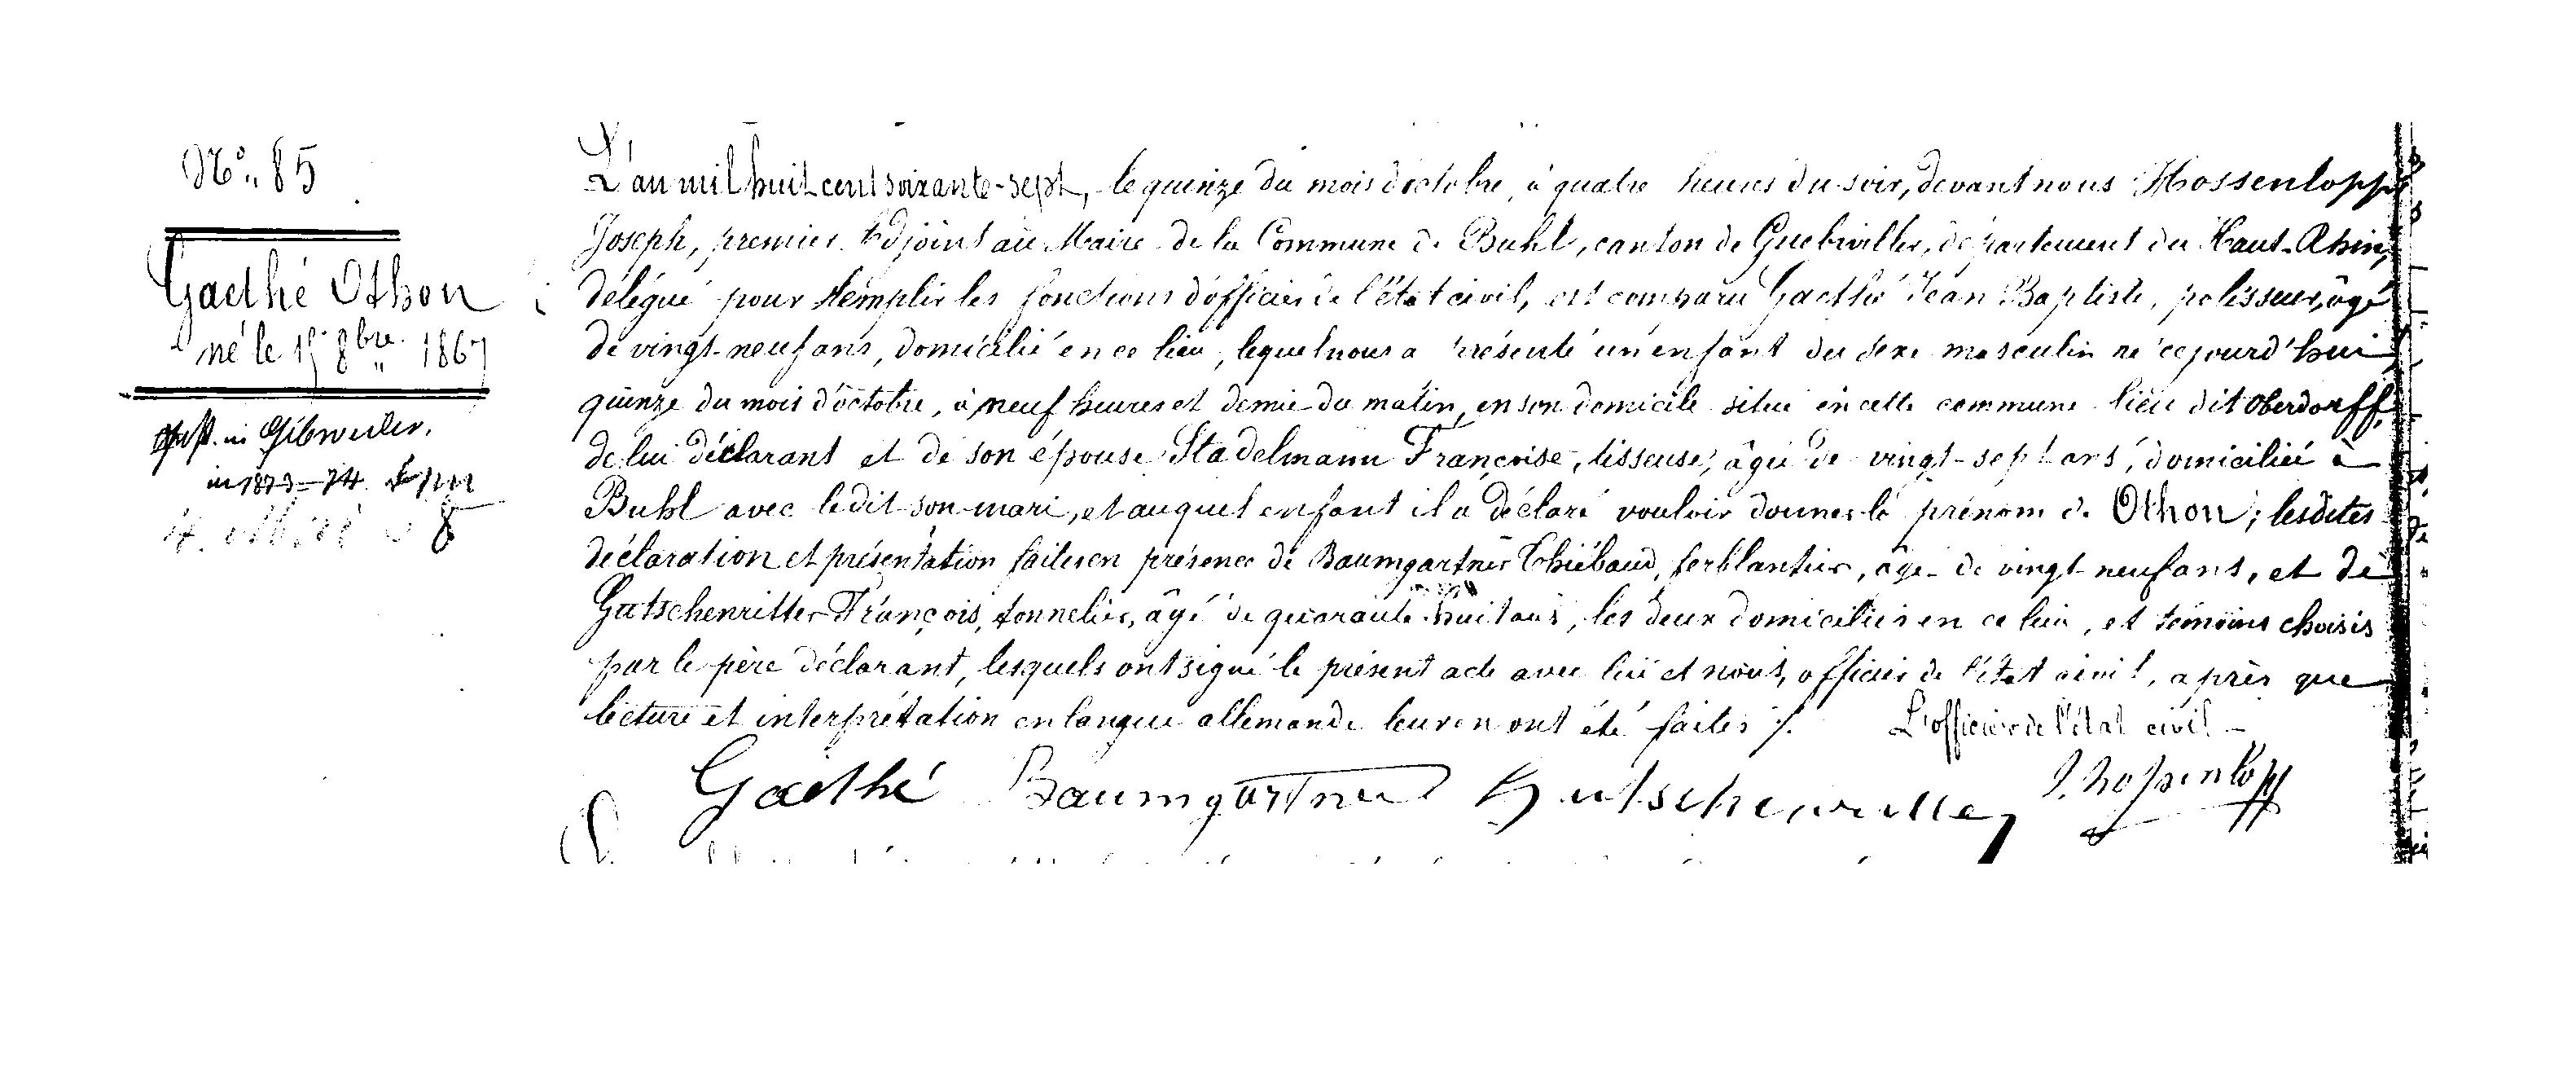 N°. 85
Gaethé Othon
né le 15 8bre. 1867
in Gibweiler.
in 1873-74.
8
L'an mil huit cent soixante-sept, le quinze du mois d'octobre, à quatre heures du soir, devant nous Hossenlopp
Joseph, premier Adjoint au Maire de la Commune de Buhl, canton de Guebwiller, département du Haut-Rhin,
délégué pour remplir les fonctions d'officier de l'état civil, est comparu Gaethé Jean Baptiste, polisseur, âgé
de vingt-neuf ans, domicilié en ce lieu, lequel nous a présenté un enfant du sexe masculin né cejourd'hui
quinze du mois d'octobre, à neuf heures et demie du matin, en son domicile situé en cette commune lieu dit Oberdorff,
de lui déclarant et de son épouse Stadelmann Françoise, tisseuse, âgée de vingt-sept ans, domiciliée à
Buhl avec ledit son mari, et auquel enfant il a déclaré vouloir donner le prénom de Othon; lesdites
déclaration et présentation faites en présence de Baumgartner Thiébaud, ferblantier, âgé de vingt-neuf ans, et de
Gutschenritter François, tonnelier, âgé de quarante-huit ans, les deux domiciliés en ce lieu, et témoins choisis
par le père déclarant, lesquels ont signé le présent acte avec lui et nous, officier de l'état civil, après que
lecture et interprétation en langue allemande leur en ont été faites ./. L'officier de l'état civil
Gaethé Baumgartner Gutschenritter J. Hossenlopp